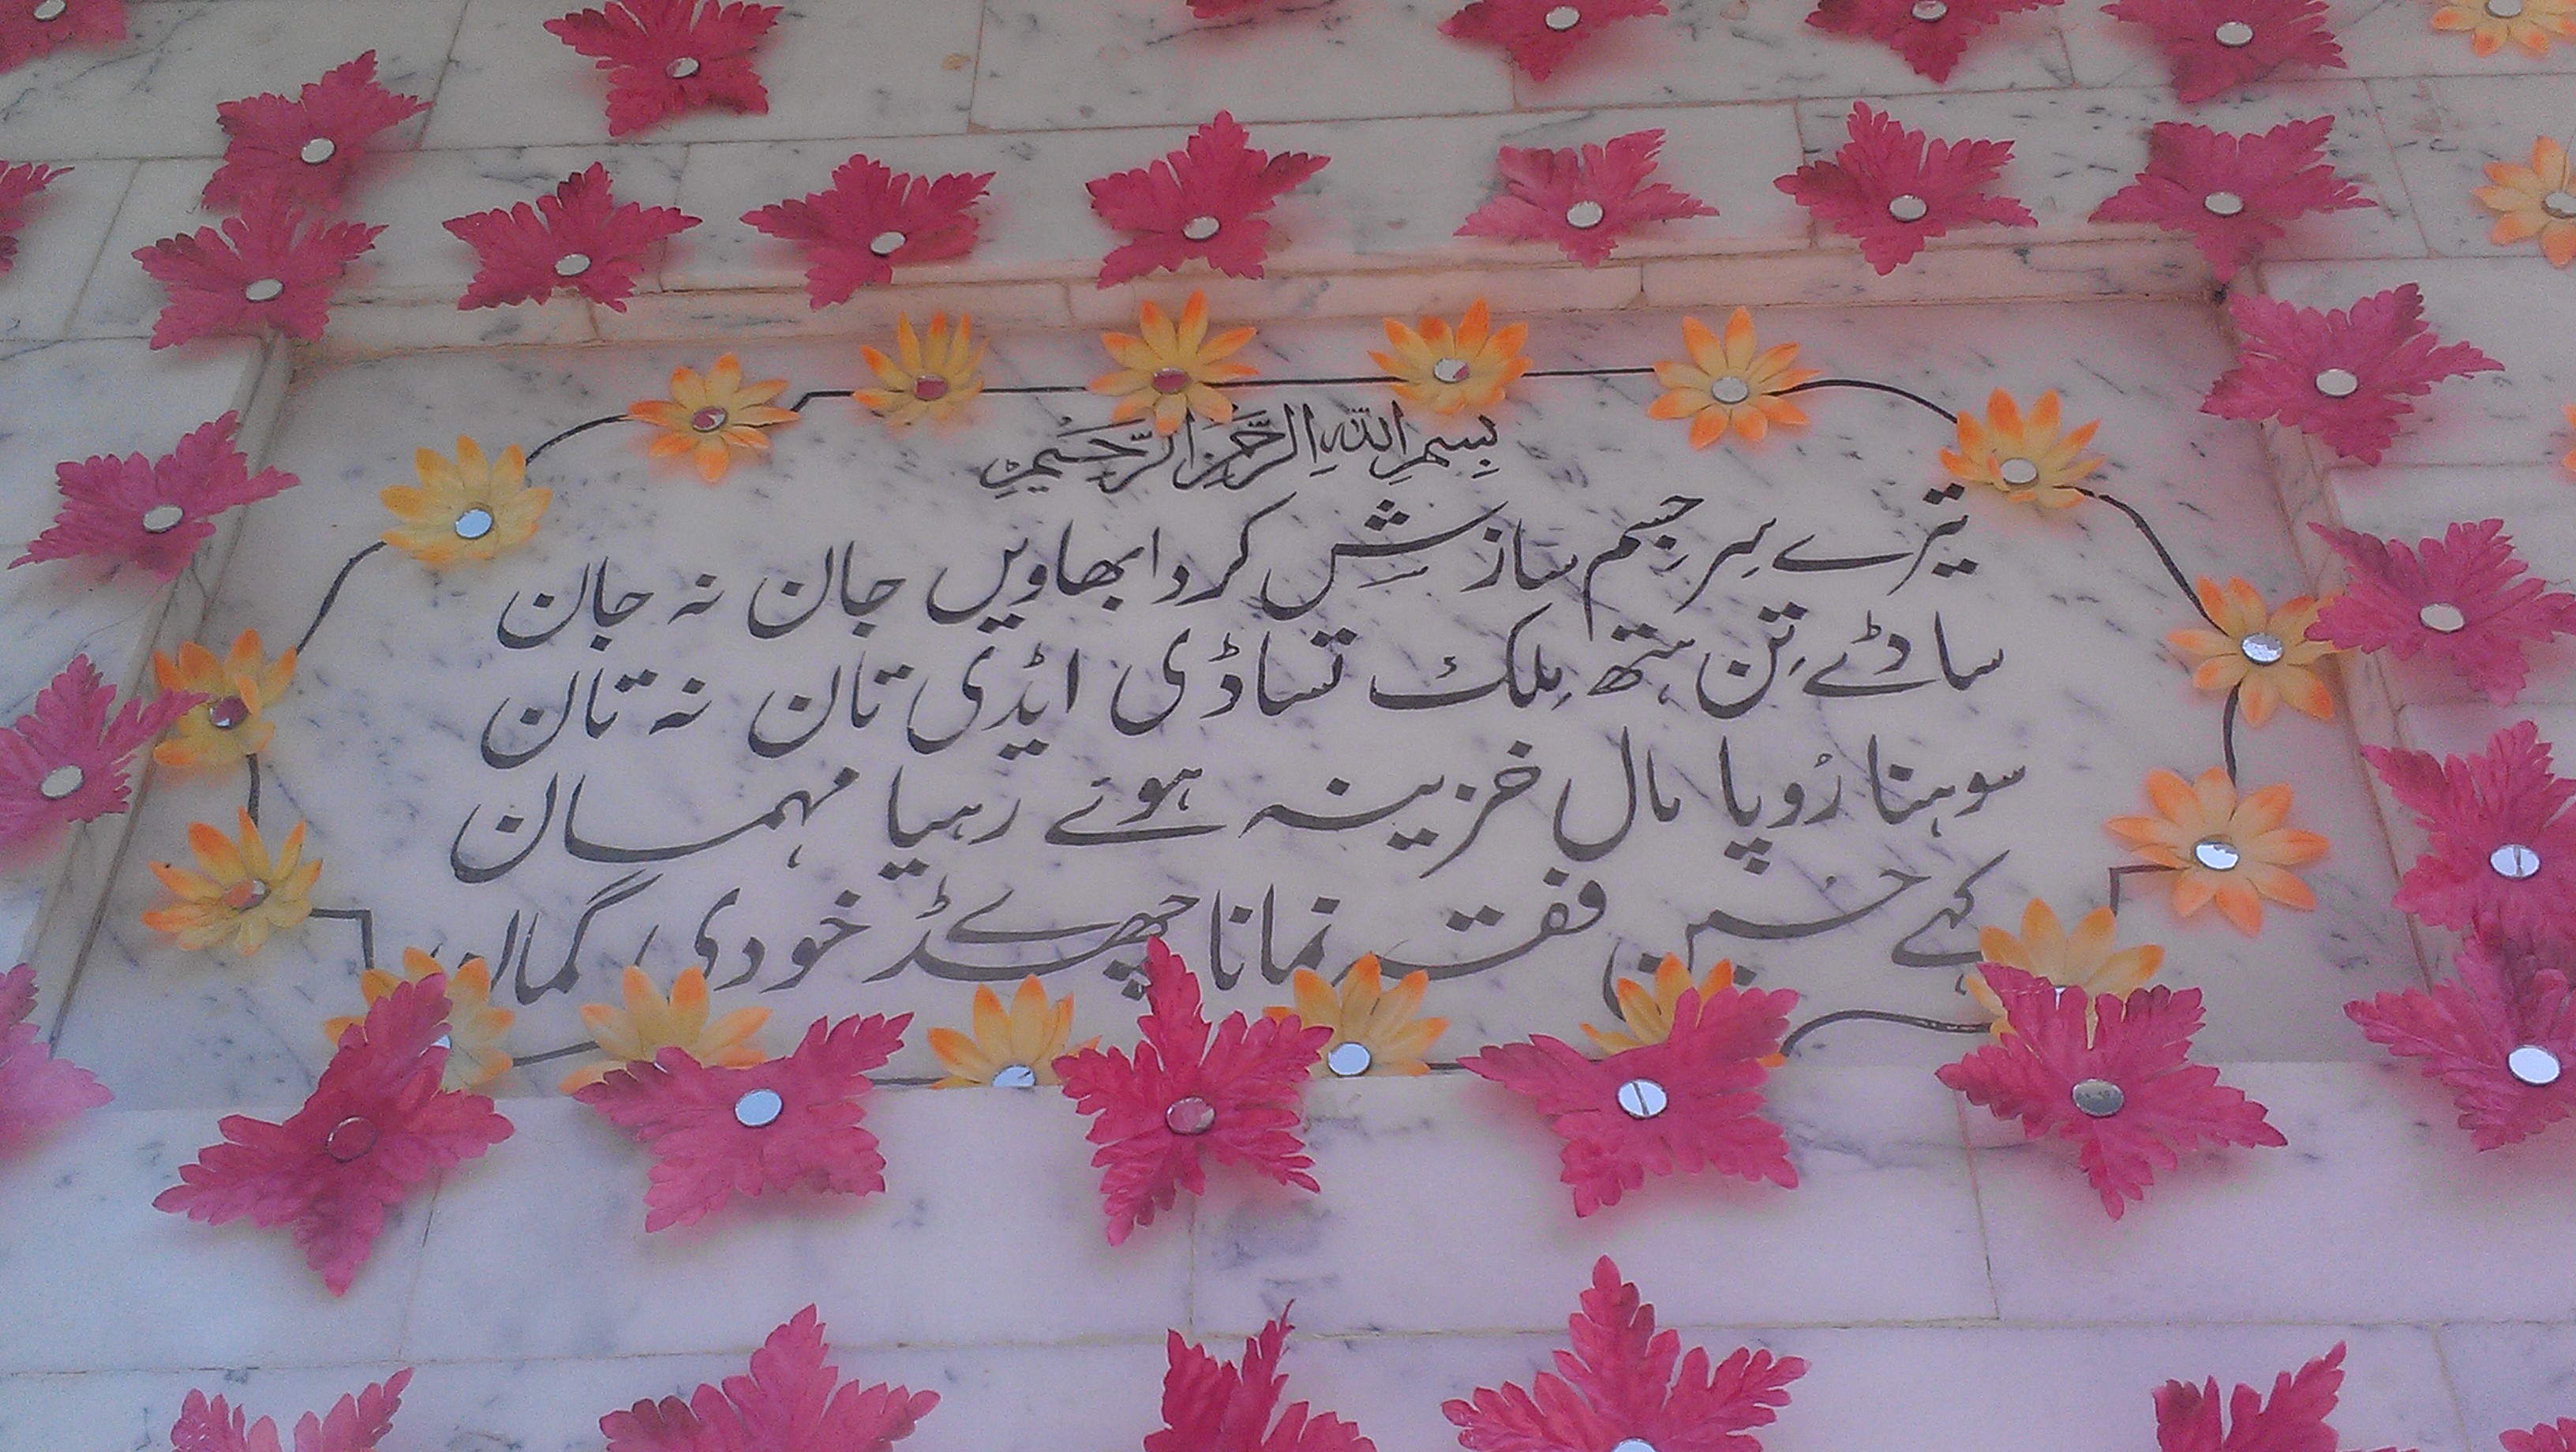 بِسمِ اللّٰهِ الرَّحمٰنِ الرَّحِيمِ
تیرے سِر جِسم سازشِش کردا بھاویں جان نہ جان
ساڈے تِن ہتھ مِلک تساڈی ایڈی تان نہ تان
سوہنا رُوپا مال خزینہ ہوئے رہیا مہمان
کہے حُسین فقیر نمانا چھڈ دے خودی گمان